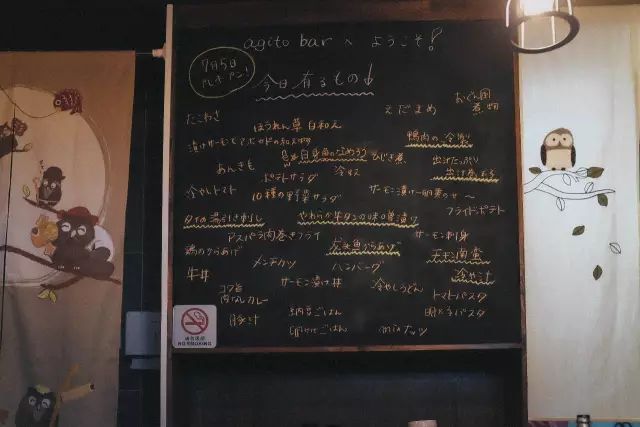 agito bar へ ようこそ!
7月5日
プレオープン!
今日有るもの↓
たこわさ
ほうれん草 白和え
えだまめ
漬けサーモンとアボカドの和え物
鴨肉の冷製
あんきも
白身魚の
ひじき煮
出汁たっぷり
出汁巻玉子
ポテトサラダ
冷奴
冷やしトマト
10種の野菜サラダ
サーモン漬け 卵黄のせ〜
フライドポテト
タコの湯引き刺し
やわらか牛タンの味噌漬け
アスパラ肉巻きフライ
サーモン刺身
鶏のからあげ
白身魚からあげ
チキン南蛮
メンチカツ
ハンバーグ
冷や汁
牛丼
サーモン漬け丼
冷やしうどん
トマトパスタ
コク旨
肉なしカレー
納豆ごはん
明太子パスタ
豚汁
卵かけごはん
mixナッツ
NO SMOKING